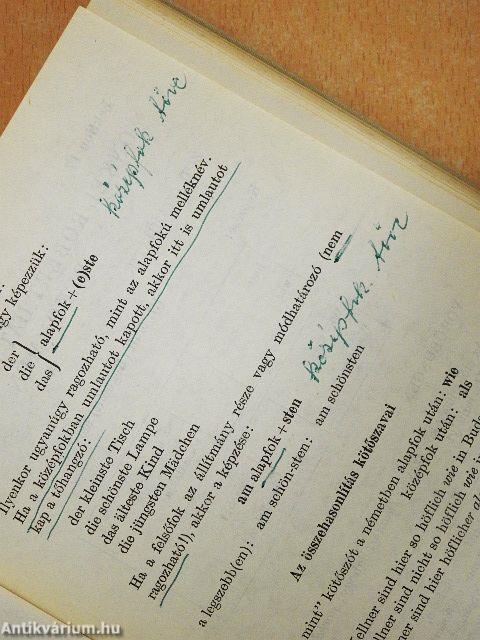 gy képezzük:
der
die
das
alapfok + (e)ste
középfok töve
Ilyenkor ugyanúgy ragozható, mint az alapfokú melléknév.
Ha a középfokban umlautot kapott, akkor itt is umlautot
kap a tőhangzó:
der kleinste Tisch
die schönste Lampe
das älteste Kind
die jüngsten Mädchen
Ha a felsőfok az állítmány része vagy módhatározó (nem
ragozható!), akkor a képzése:
am alapfok + sten
középfok töve
a legszebb(en): am schön-sten: am schönsten
Az összehasonlítás kötőszavai
mint" kötőszót a németben alapfok után: wie
középfok után: als
ellner sind hier so höflich wie in Buda
lner sind nicht so höflich wie
ner sind hier höflicher
Antikvárium.hu